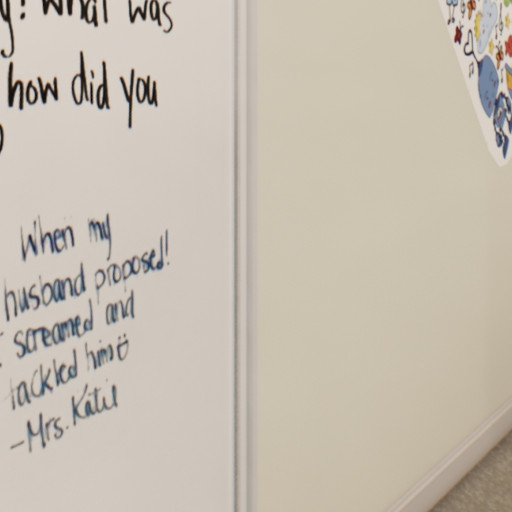 y! What was
how did you
?
When my
husband proposed!
I screamed and
tackled him
-Mrs. Katie